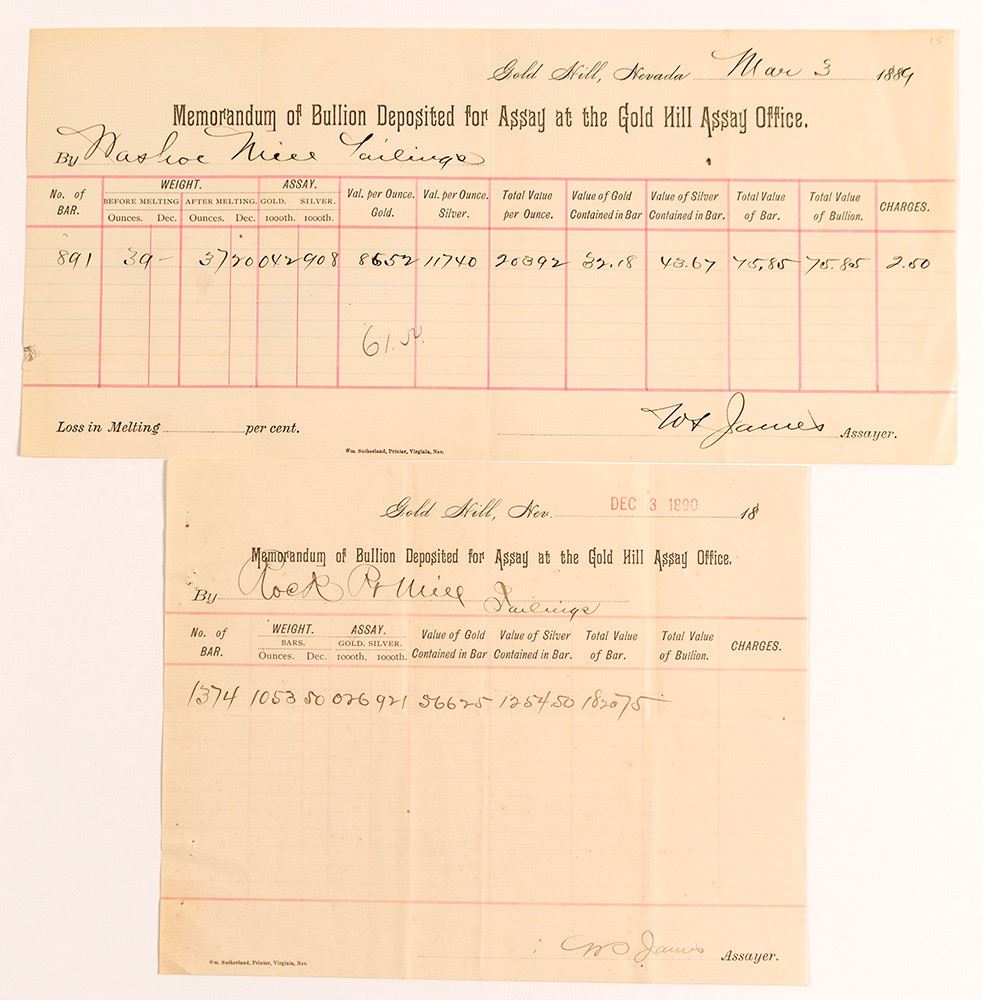 15
Gold Hill, Nevada Mar 3 1889
Memorandum of Bullion Deposited for Assay at the Gold Hill Assay Office.
By Washoe Mill Tailings
No. of BAR. WEIGHT. BEFORE MELTING Ounces. Dec. AFTER MELTING. Ounces. Dec. ASSAY. GOLD. 1000th. SILVER. 1000th. Val. per Ounce. Gold. Val. per Ounce. Silver. Total Value per Ounce. Value of Gold Contained in Bar Value of Silver Contained in Bar. Total Value of Bar. Total Value of Bullion. CHARGES.
891 39 - 37 20 042 908 8652 11740 20392 32.18 43.67 75.85 75.85 2.50
Loss in Melting per cent.
WS James Assayer.
Wm. Sutherland, Printer, Virginia, Nev.
Gold Hill, Nev. DEC 3 1890 18
Memorandum of Bullion Deposited for Assay at the Gold Hill Assay Office.
By Rock Pt Mill Tailings
No. of BAR. WEIGHT. BARS. Ounces. Dec. ASSAY. GOLD. SILVER. 1000th. 1000th. Value of Gold Contained in Bar Value of Silver Contained in Bar. Total Value of Bar. Total Value of Bullion. CHARGES.
1374 1053 50 026 921 56625 125450 182075
WS James Assayer.
Wm. Sutherland, Printer, Virginia, Nev.